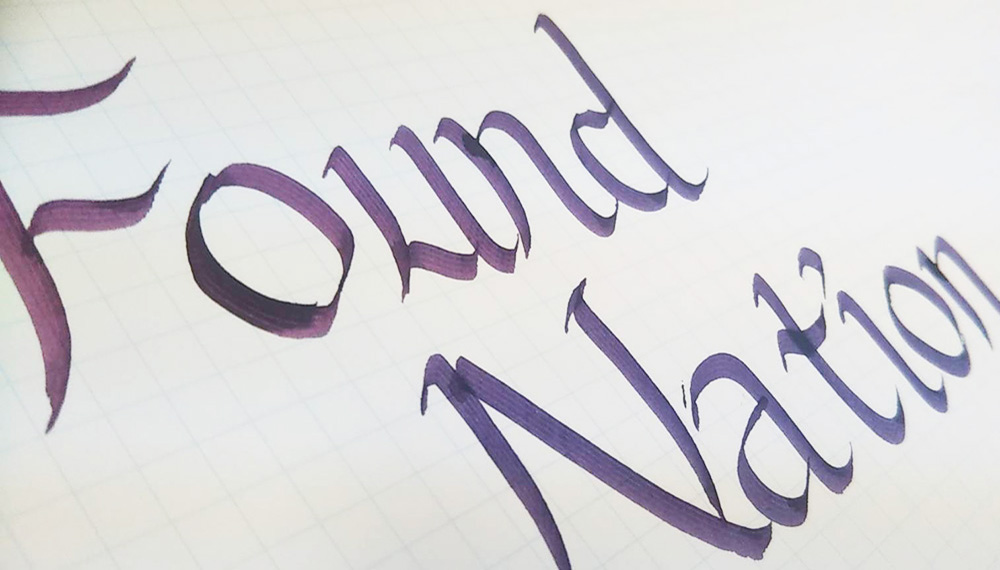 Found
Nation